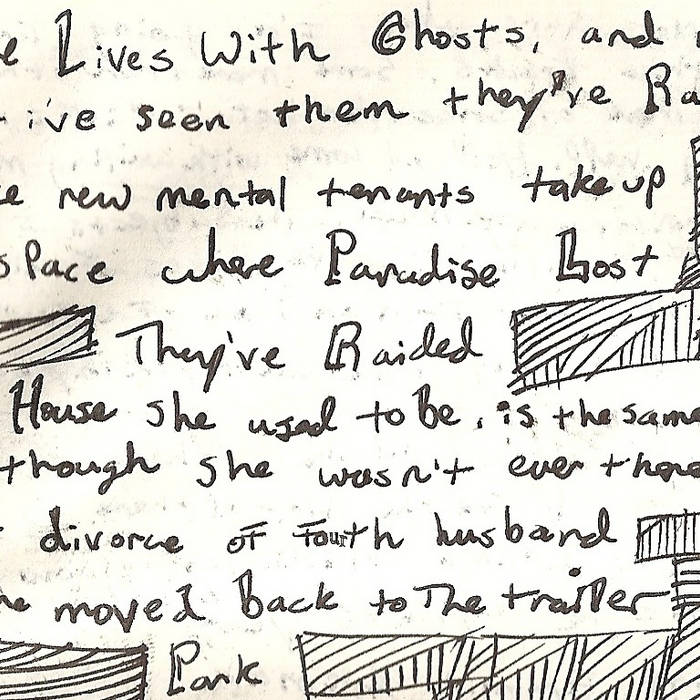 Lives With Ghosts, and
i've seen them they've Ra
new mental tenants take up
space where Paradise Lost
They've Raided
House she used to be, is the same
though she wasn't ever there
divorce of fourth husband
moved Back to The trailer
Park